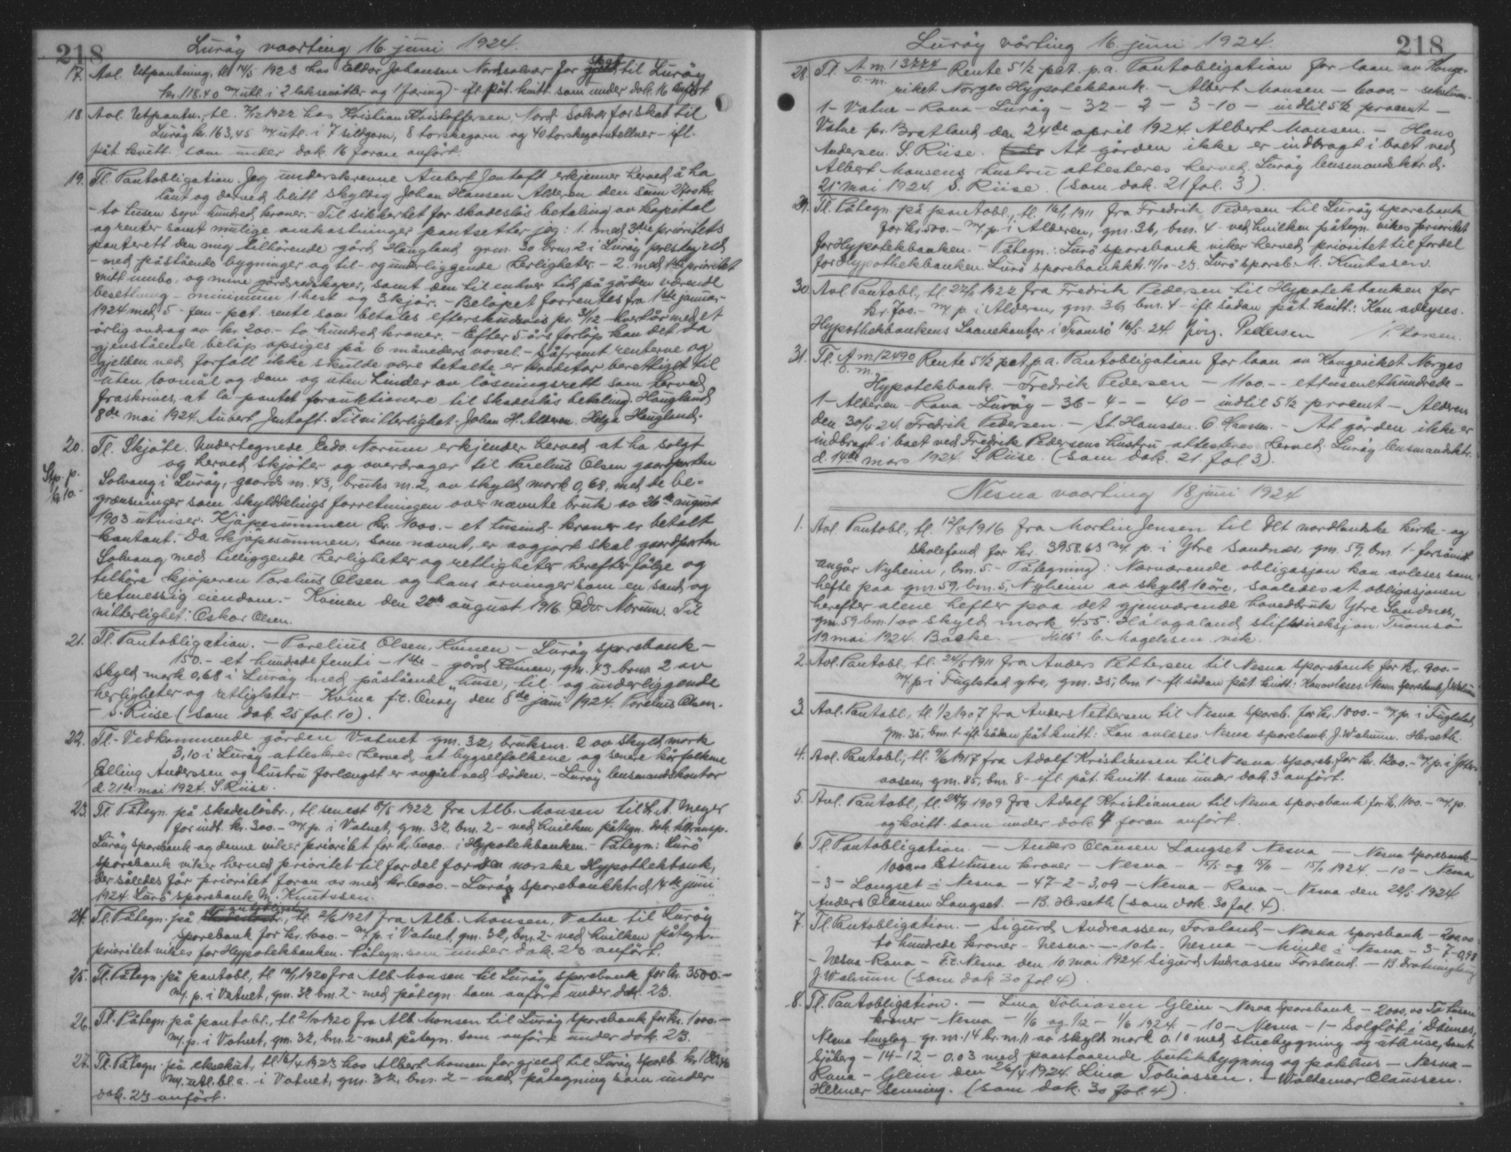 218
Lurøy vaarting 16 juni 1924.
17. Avl. Utpantning, tl. 1923 hos Eldor Johansen Nordsolvær for skat til Lurøy
kr. 118.40 m/utl. i 2 laksenøter og 1 færing - ifl. påt. kvitt. som under dok. 16 anført
18. Avl. Utpantn., tl. 1922 hos Kristian Kristoffersen Nord Solvær for skat til
Lurøy kr. 163,45 m/utl. i 7 sildgarn, 8 torskegarn og 40 torskegarntellner - ifl.
påt. kvitt. som under dok. 16 foran anført.
19. Tl. Pantobligation. Jeg underskrevne Anbert Jentoft erkjenner herved å ha
laant og derved blitt skyldig Johan Hansen Alderen den sum 2700 kr.
- to tusen syv hundred kroner. - Til sikkerhet for skadesløs betaling av kapital
og renter samt mulige omkostninger pantsetter jeg: 1. med 3dje prioritets
panterett den mig tilhørende gård Haugland gnr. 30 brnr. 2 i Lurøy prestegjeld
- med påstående bygninger og til- og underliggende herligheter - 2. med 1ste prioritet
mitt innbo og mine gårdsredskaper, samt den til enhver tid på gården værende
besetning - minimum 1 hest og 3 kjør. - Beløpet forrentes fra 1ste januar
1924 med 5 - fem - pct. rente som betales efterskudsvis pr. 31/12 hvert år med et
årlig avdrag av kr. 200 - to hundred kroner. - Efter 5 års forløp kan det da
gjenstående beløp opsiges på 6 måneders varsel. - Såfremt renterne og
gjelden ved forfall ikke skulde være betalte er kreditor berettiget til
uten lovmål og dom og uten hinder av løsningsrett som herved
fraskrives, at la pantet foranktionere til skadesløs betaling. Haugland
8de mai 1924. Anbert Jentoft. Til vitterlighet: Johan H. Alderen. Helge Haugland.
20. Tl. Skjøte. Undertegnede Edv. Norum erkjender herved at ha solgt
og herved skjøter og overdrager til Parelius Olsen gaardparten
Solvang i Lurøy, gaards nr. 43, bruks nr. 2, av skyld mark 0,68, med de be-
grænsninger som skylddelings forretningen over nævnte bruk av 26de august
1903 utviser. Kjøpesummen kr. 1000. - et tusind - kroner er betalt
kontant. Da kjøpesummen, som nævnt, er avgjort skal gaardparten
Solvang med tilliggende herligheter og rettigheter herefter følge og
tilhøre kjøperen Parelius Olsen og hans arvinger som en sand og
retmessig eiendom. - Kvinen den 20de august 1916. Edv. Norum. Til
vitterlighet: Oskar Olsen.
21. Tl. Pantobligation. - Parelius Olsen, Kvinen - Lurøy sparebank -
150. - et hundrede femti - 1ste - gård Kvinen, gnr. 43 brnr. 2 av
skyld mark 0,68 i Lurøy med påstående huse, til- og underliggende
herligheter og rettigheter. - Kvina f.t. Onøy den 6de juni 1924. Parelius Olsen.
- S. Riise (som dok. 25 fol. 10).
22. Tl. Vedkommende gården Vatnet gnr. 32, bruksnr. 2 av skyld mark
3,10 i Lurøy attesteres herved, at bygselfolkene og senere kårfolkene
Elling Anderssen og hustru forlængst er avgået ved døden. - Lurøy lensmandskontor
d. 21de mai 1924. S. Riise.
23. Tl. Påtegn. på skadesløsbr., tl. senest 1922 fra Alb. Monsen til L. A. Meyer
for indt. kr. 300. - m/p. i Vatnet, gnr. 32, bnr. 2 - ved hvilken påtegn. dok. transp.
Lurøy sparebank og denne viker prioritet for kr. 6000. - i Hypotekbanken. - Påtegn: Lurø
sparebank viker herved prioritet til fordel for den norske Hypothekbank,
der således får prioritet foran os med kr. 6000. - Lurøy sparebankktr. d. 14de juni
1924. Lurø sparebank M. Knutssen.
24. Tl. Påtegn. på pantobligation, tl. 1921 fra Alb. Monsen, Vatne til Lurøy
sparebank for kr. 1000. - m/p. i Vatnet, gnr. 32, bnr. 2 - ved hvilken påtegn.
prioritet vikes for Hypotekbanken. Påtegn. som under dok. 23 anført.
25. Tl. Påtegn. på pantobl. tl. 1920 fra Alb. Monsen til Lurøy sparebank for kr. 3500. -
m/p. i Vatnet, gnr. 32 bnr. 2 - med påtegn. som anført under dok. 23.
26. Tl. Påtegn. på pantobl., tl. 1920 fra Alb. Monsen til Lurøy sparebank for kr. 1000 -
m/p. i Vatnet, gnr. 32, bnr. 2 - med påtegn. som anført under dok. 23.
27. Tl. Påtegn. på eksekut., tl. 1923 hos Albert Monsen for gjeld til Lurøy spareb. kr.
m/utl. bl. a. i Vatnet, gnr. 32, bnr. 2 - med påtegning som under
dok. 23 anført.
218
Lurøy vårting 16 juni 1924.
28. Tl. A.m. 13774 Rente 5½ pct. p.a. Pantobligation for laan av Konge-
riket Norges Hypotekbank - Albert Monsen - 6000. - sekstusen -
1 - Vatne - Rana - Lurøy - 32 - 2 - 3-10 - indtil 5½ procent -
Vatne pr. Bratland den 24de april 1924 Albert Monsen. - Hans
Andersen. S. Riise. At gården ikke er indbragt i boet ved
Albert Monsens hustru attesteres herved. Lurøy lensmandsktr. d.
21 mai 1924. S. Riise. (som dok. 21 fol. 3).
29. Tl. Påtegn. på pantobl., tl. 1911 fra Fredrik Pedersen til Lurøy sparebank
for kr. 500. - m/p. i Alderen, gnr. 36, bnr. 4 - ved hvilken påtegn. vikes prioritet
for Hypotekbanken. - Påtegn: Lurø sparebank viker herved prioritet til fordel
for Hypothekbanken. Lurø sparebankktr. 11/10 - 23. Lurø spareb. M. Knutssen.
30. Avl. Pantobl., tl. 1922 fra Fredrik Pedersen til Hypotekbanken for
kr. 700. - m/p. i Alderen, gnr. 36, bnr. 4 - ifl. sådan påt. kvitt.: Kan avlyses.
Hypothekbankens Laanekontor i Tromsø 16/5 - 24 Jørg. Pedersen
31. Tl. A.m. 12490 Rente 5½ pct p.a. Pantobligation for laan av Kongeriket Norges
Hypotekbank - Fredrik Pedersen - 1100. - - ettusenetthundrede -
1 - Alderen - Rana - Lurøy - 36 - 4 - - 40 - indtil 5½ procent - Alderen
den 30/1 24 Fredrik Pedersen - St. Hanssen. O. Hansen. - At gården ikke er
indbragt i boet ved Fredrik Pedersens hustru attesteres herved. Lurøy lensmandsktr.
d. 14de mars 1924. S. Riise. (som dok. 21 fol. 3).
Nesna vaarting 18 juni 1924
1. Avl. Pantobl., tl. 1916 fra Martin Jensen til Det nordlandske kirke- og
skolefond for kr. 3958.63 m/p. i Ytre Sandnes, gnr. 59, bnr. 1 - forsåvidt
angår Nyheim, bnr. 5. - Påtegning: Nærværende obligasjon kan avleses som
hefte paa gnr. 59, bnr. 5, Nyheim av skyld øre, saaledes at obligasjonen
herefter alene hefter paa det gjenværende hovedbruk Ytre Sandnes,
gnr. 59 bnr. 1 av skyld mark 4.55. Hålogaland stiftsdireksjon. Tromsø
19 mai 1924. Backe. C. Magelssen vik.
2. Avl. Pantobl. tl. 1911 fra Anders Pettersen til Nesna sparebank for kr. 900. -
m/p. i Fuglstad ytre, gnr. 35, bnr. 1 - ifl. sådan påt. kvitt.: Kan avleses. Nesna sparebank, J. Walnum
3. Avl. Pantobl., tl. 1/2 1907 fra Anders Pettersen til Nesna spareb. for kr. 1800. - m/p. i Fuglstad
gnr. 35, bnr. 1 - ifl. sådan påt. kvitt.: Kan avleses Nesna sparebank, J. Walnum. Herseth.
4. Avl. Pantobl., tl. 1917 fra Adolf Kristiansen til Nesna spareb. for kr. 1200. - m/p. i
aasen, gnr. 85, bnr. 8 - ifl. påt. kvitt. som under dok. 3 anført.
5. Avl. Pantobl., tl. 1909 fra Adolf Kristiansen til Nesna sparebank for kr. 1100. - m/p.
og kvitt. som under dok. 4 foran anført.
6. Tl. Pantobligation. - Anders Clausen Langset Nesna - Nesna sparebank -
1000.00 Ettusen kroner - Nesna - og - 1924. - 10 - Nesna
- 3 - Langset i Nesna - 47 - 2 - 3,09 - Nesna - Rana - Nesna den 24/5 1924
Anders Clausen Langset. - B. Herseth (som dok. 30 fol. 4).
7. Tl. Pantobligation. - Sigurd Andreassen, Forsland - Nesna sparebank - 200.00
to hundrede kroner - Nesna - 10 ti. Nesna - Minde i Nesna - 3 - 7 - 0,98
- Nesna - Rana - F.t. Nesna den 10 mai 1924 Sigurd Andreassen Forsland. - B. Dratningberg
J. Walnum (som dok. 30 fol. 4)
8. Tl. Pantobligation. - Lina Tobiasen Glein - Nesna sparebank - 2000.00 To tusen
kroner - Nesna - 1/6 og 1/12 - 1/6 1924. - 10 - Nesna - 1 - Solfløt i Dønnes,
Nesna tinglag gr. nr. 14 br. nr. 11 av skyld mark 0.10 med stuebygning og uthuse, samt
Sjøberg - 14 - 12 - 0.03 med paastaaende butikbygning og pakhus - Nesna -
Rana - Glein den 26/4 1924. Lina Tobiassen. - Waldemar Olaussen.
Helmer Benning. (som dok. 30 fol. 4).